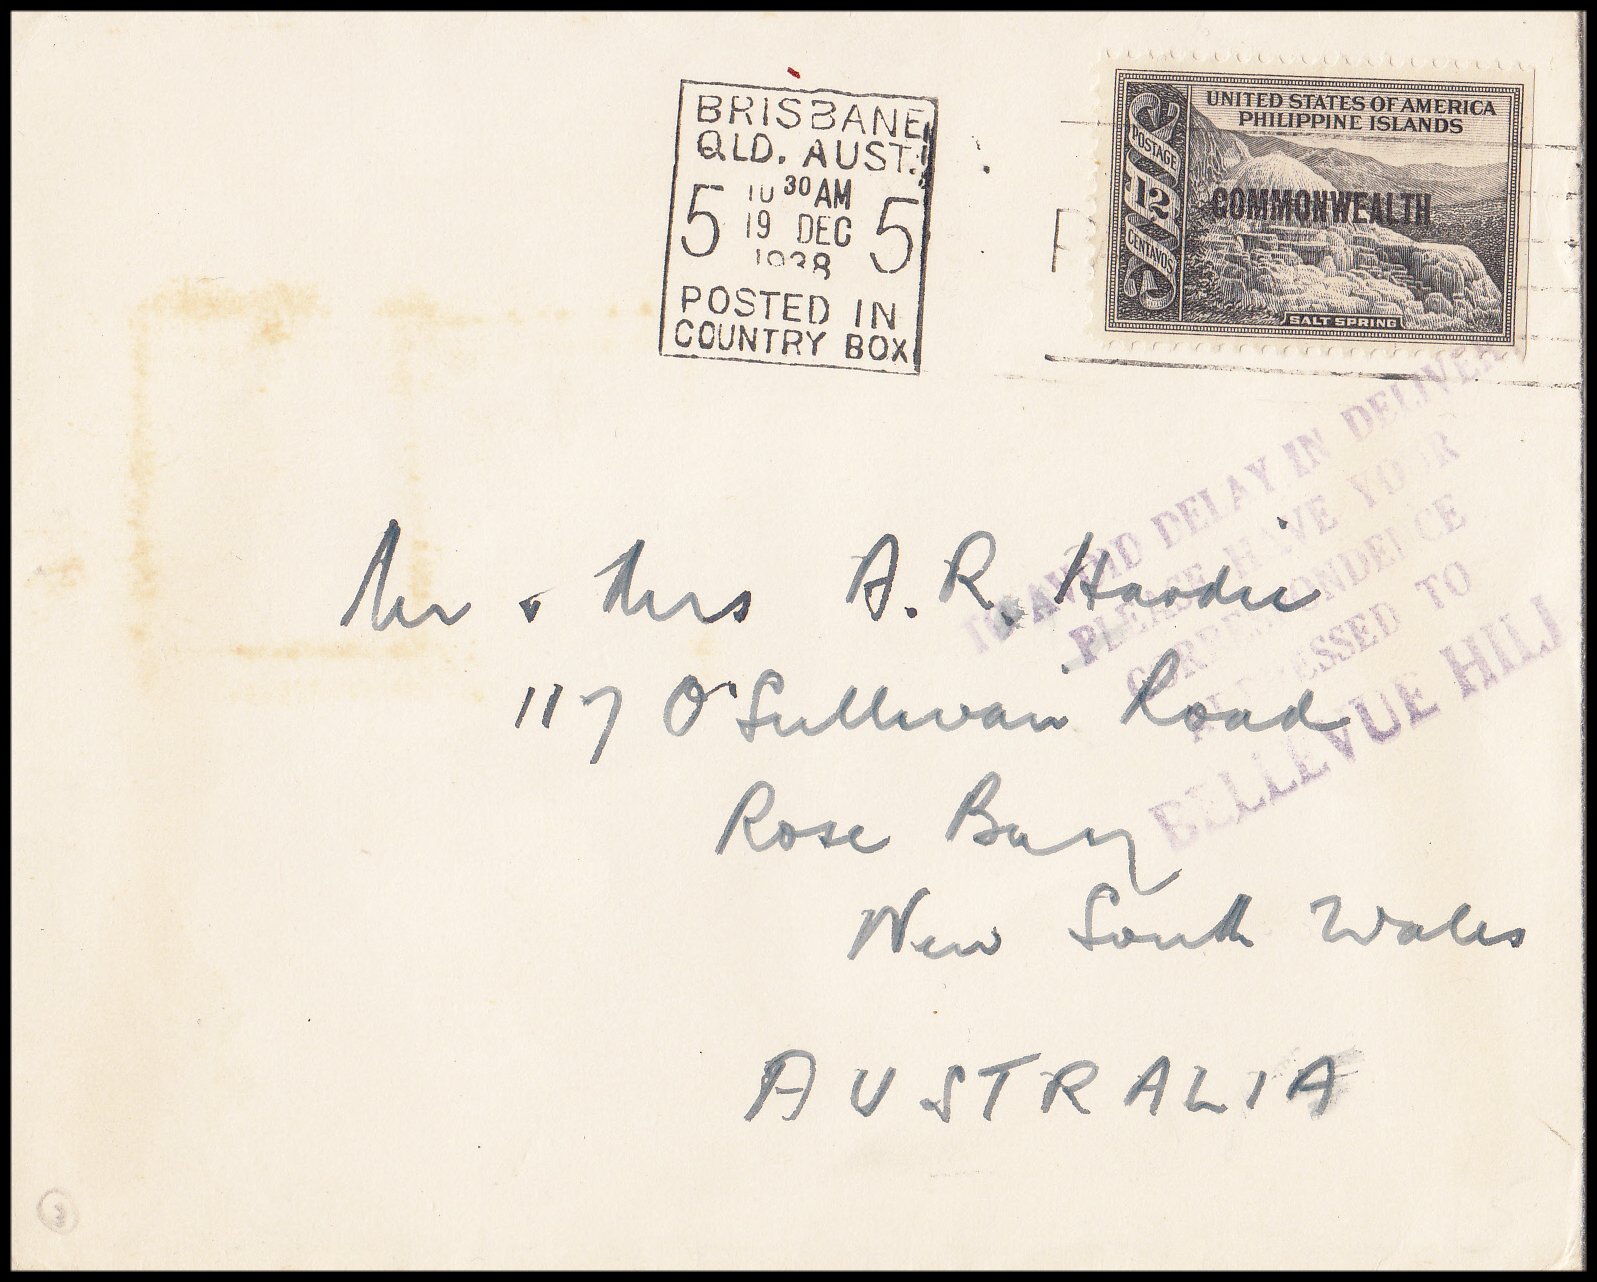 BRISBANE
QLD. AUST.
5 10 30 AM 5
19 DEC
1938
POSTED IN
COUNTRY BOX
UNITED STATES OF AMERICA
PHILIPPINE ISLANDS
POSTAGE
12
CENTAVOS
COMMONWEALTH
SALT SPRING
TO AVOID DELAY IN DELIVERY
PLEASE HAVE YOUR
CORRESPONDENCE
ADDRESSED TO
BELLEVUE HILL
Mr & Mrs A. R. Hardie
117 O'Sullivan Road
Rose Bay
New South Wales
AUSTRALIA
3